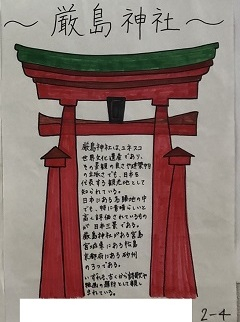 ～厳島神社～
厳島神社は、ユネスコ
世界文化遺産であり、
その景観の良さや建築物
の立派さでも、日本を
代表する観光地として
知られている。
日本にある名勝地の中
でも、特に素晴らしいと
高く評価されているもの
が日本三景である。
厳島神社がある宮島
宮城県にある松島
京都府にある
の3つである。
いずれも、古くから詩歌や
映画の題材として親し
まれている。
2-4